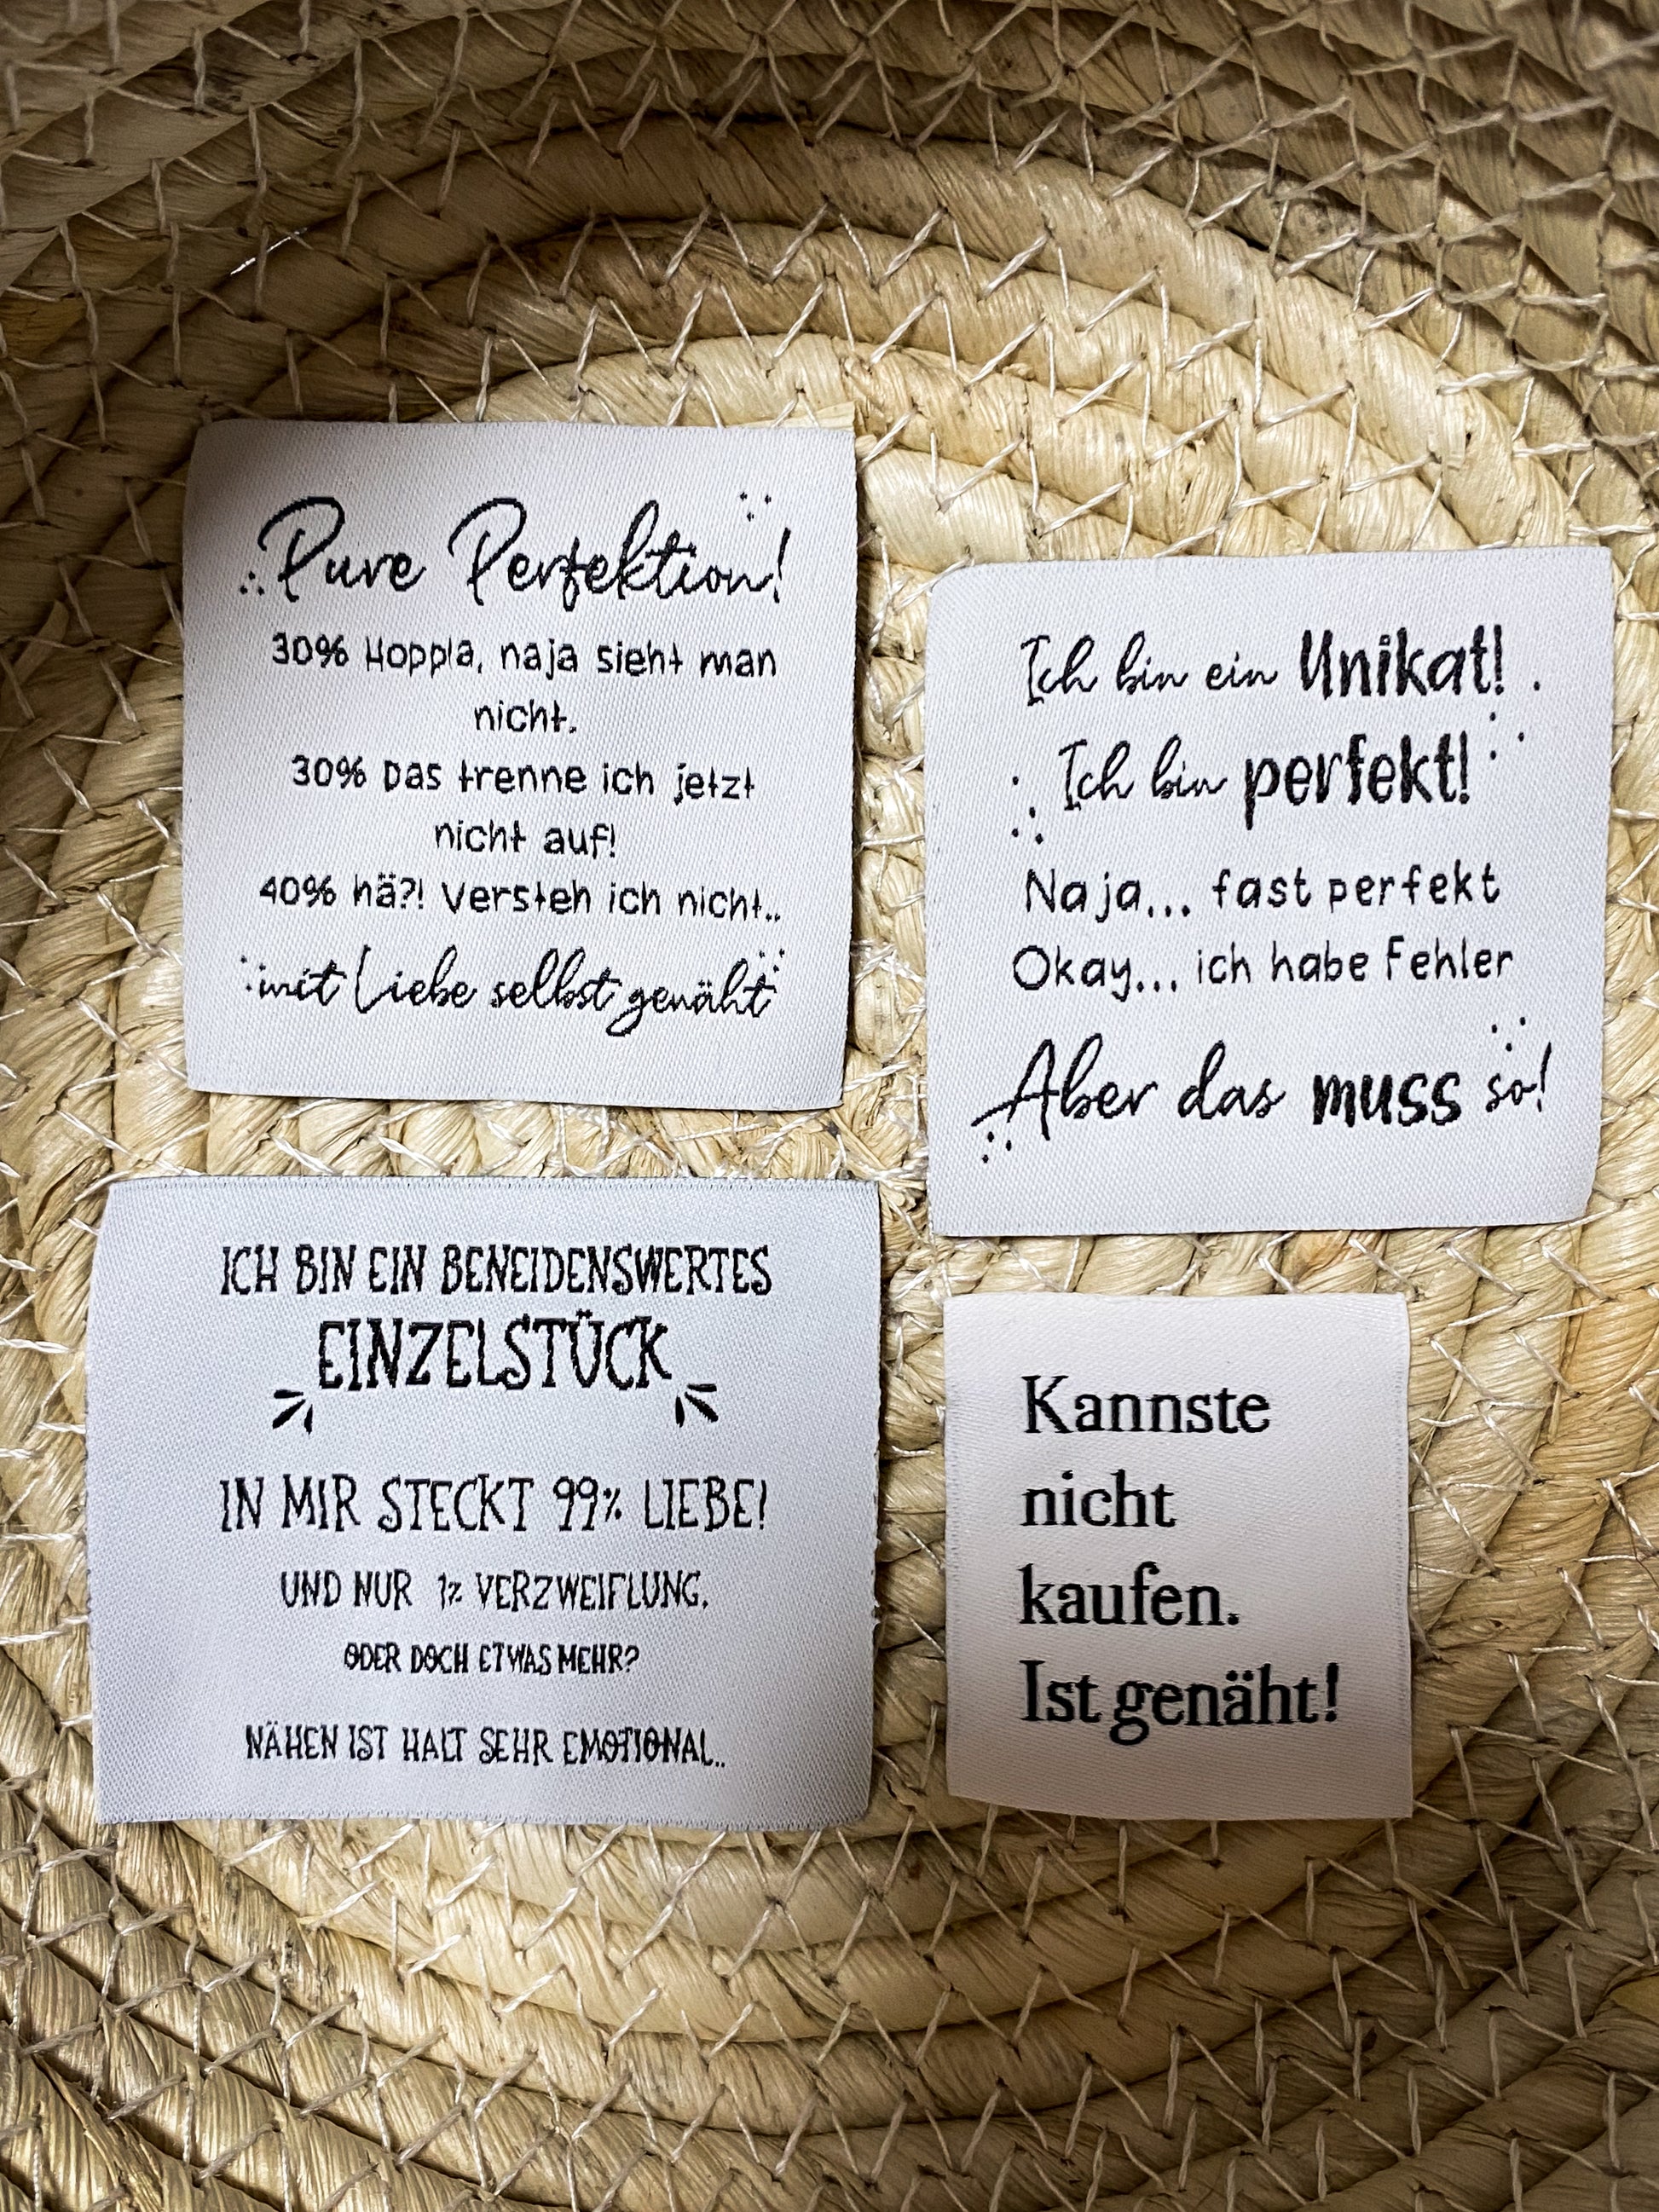 Pure Perfektion!
30% Hoppla, naja sieht man
nicht.
30% Das trenne ich jetzt
nicht auf!
40% hä?! Versteh ich nicht..
mit Liebe selbst genäht
Ich bin ein Unikat!
Ich bin perfekt!
Naja... fast perfekt
Okay... ich habe Fehler
Aber das muss so!
ICH BIN EIN BENEIDENSWERTES
EINZELSTÜCK
IN MIR STECKT 99% LIEBE!
UND NUR 1% VERZWEIFLUNG.
ODER DOCH ETWAS MEHR?
NÄHEN IST HALT SEHR EMOTIONAL..
Kannste
nicht
kaufen.
Ist genäht!